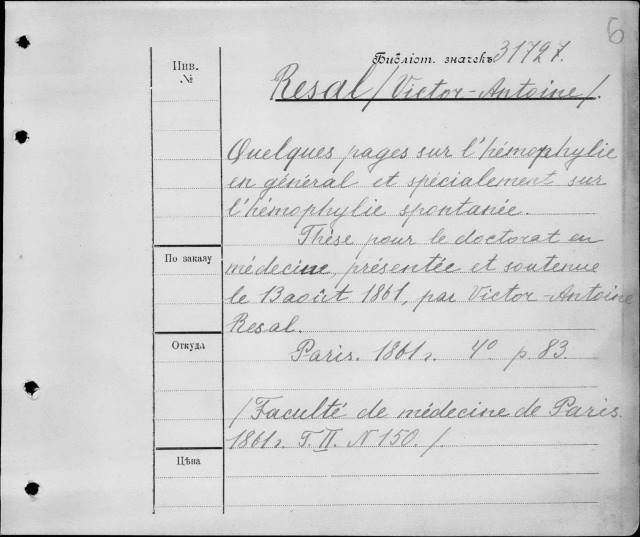 6
Библіот. значекъ 31727.
Инв.
№
Resal /Victor-Antoine/.
Quelques pages sur l'hémophylie
en général et spécialement sur
l'hémophylie spontanée.
Thèse pour le doctorat en
По заказу
médecine, présentée et soutenue
le 13 août 1861, par Victor-Antoine
Resal.
Откуда
Paris. 1861 г. 4º p. 83.
/Faculté de médecine de Paris.
1861 г. T. II. N 150./.
Цѣна